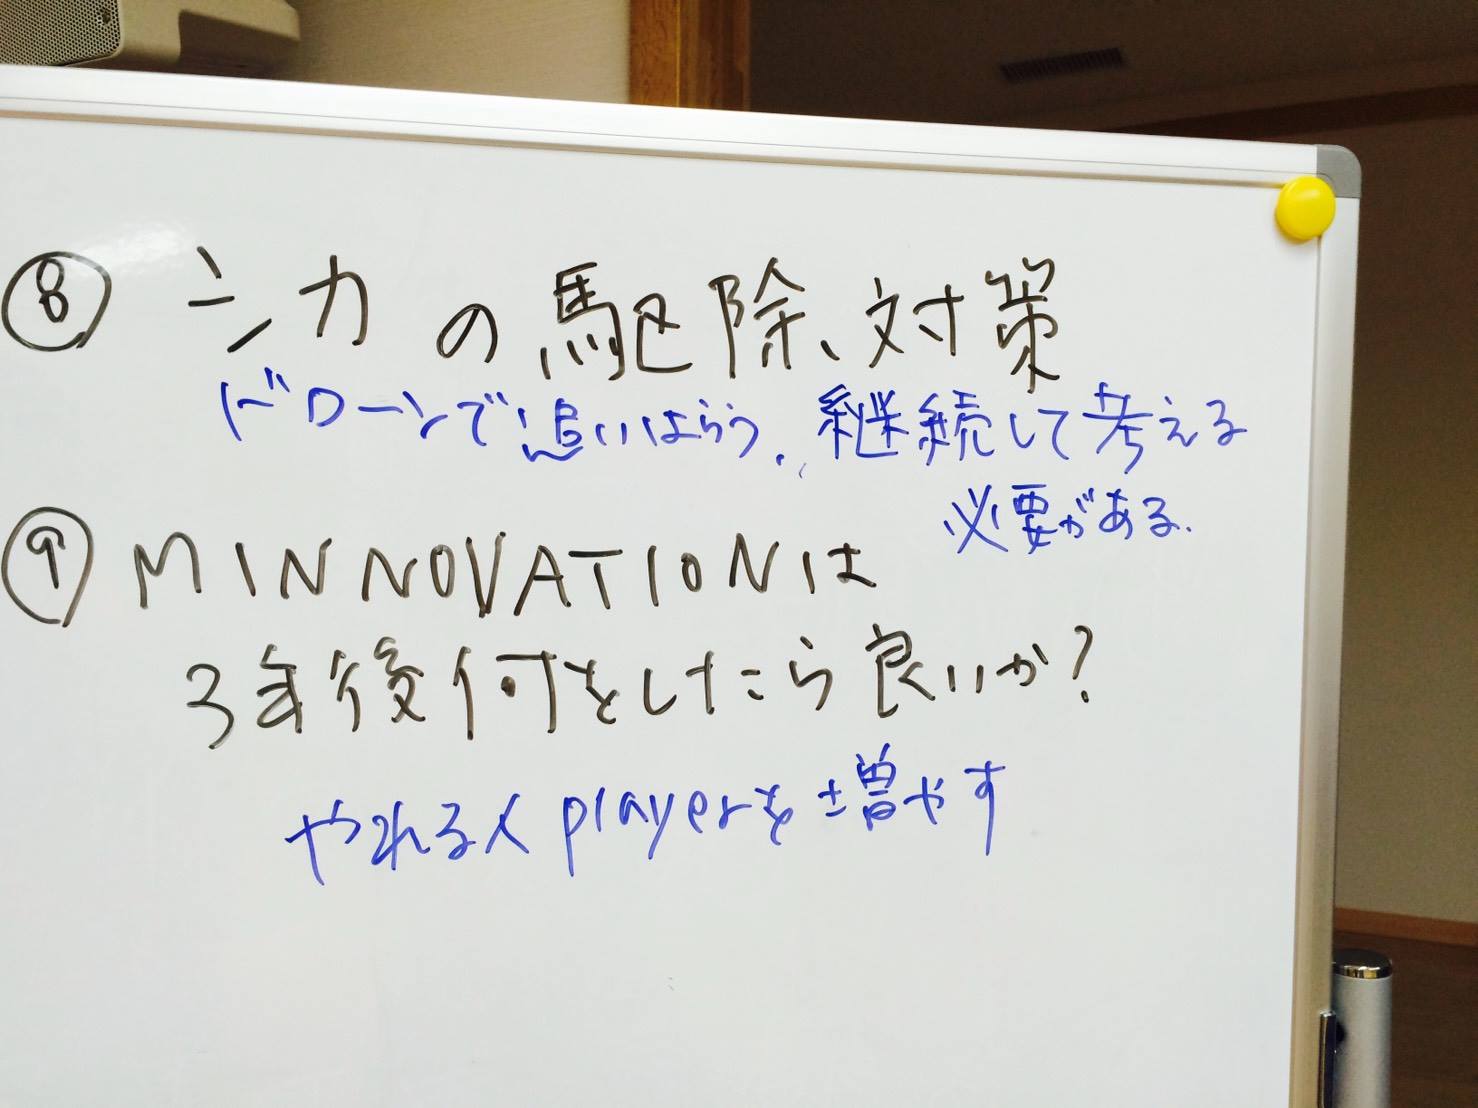 ⑧ シカの駆除、対策
ドローンで追いはらう. 継続して考える
必要がある.
⑨ MINNOVATIONは
3年後何をしたら良いか?
やれる人 playerを増やす